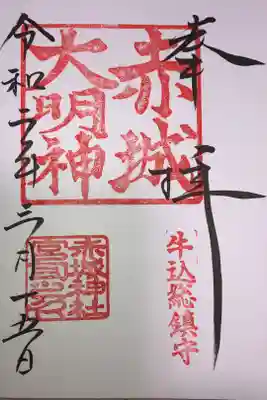 奉拝
赤城
大明神
牛込総鎮守
赤城神社
令和二年三月十五日